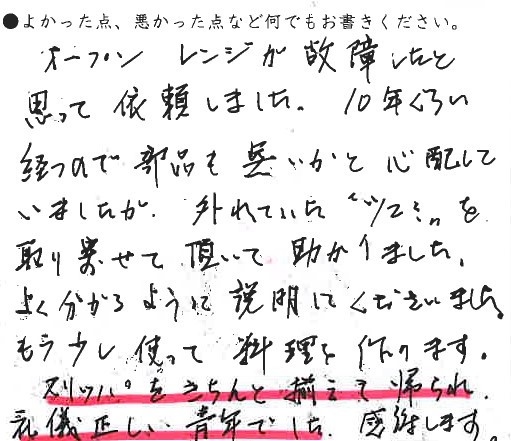 ●よかった点、悪かった点など何でもお書きください。
オーブン レンジが 故障したと
思って 依頼しました。10年ぐらい
経つので 部品も 無いかと 心配して
いましたが、外れていた "ツマミ" を
取り寄せて 頂いて 助かりました。
よく分かるように 説明してくださいました。
もう少し 使って 料理を 作ります。
スリッパをきちんと揃えて帰られ、
礼儀正しい青年でした。感謝します。